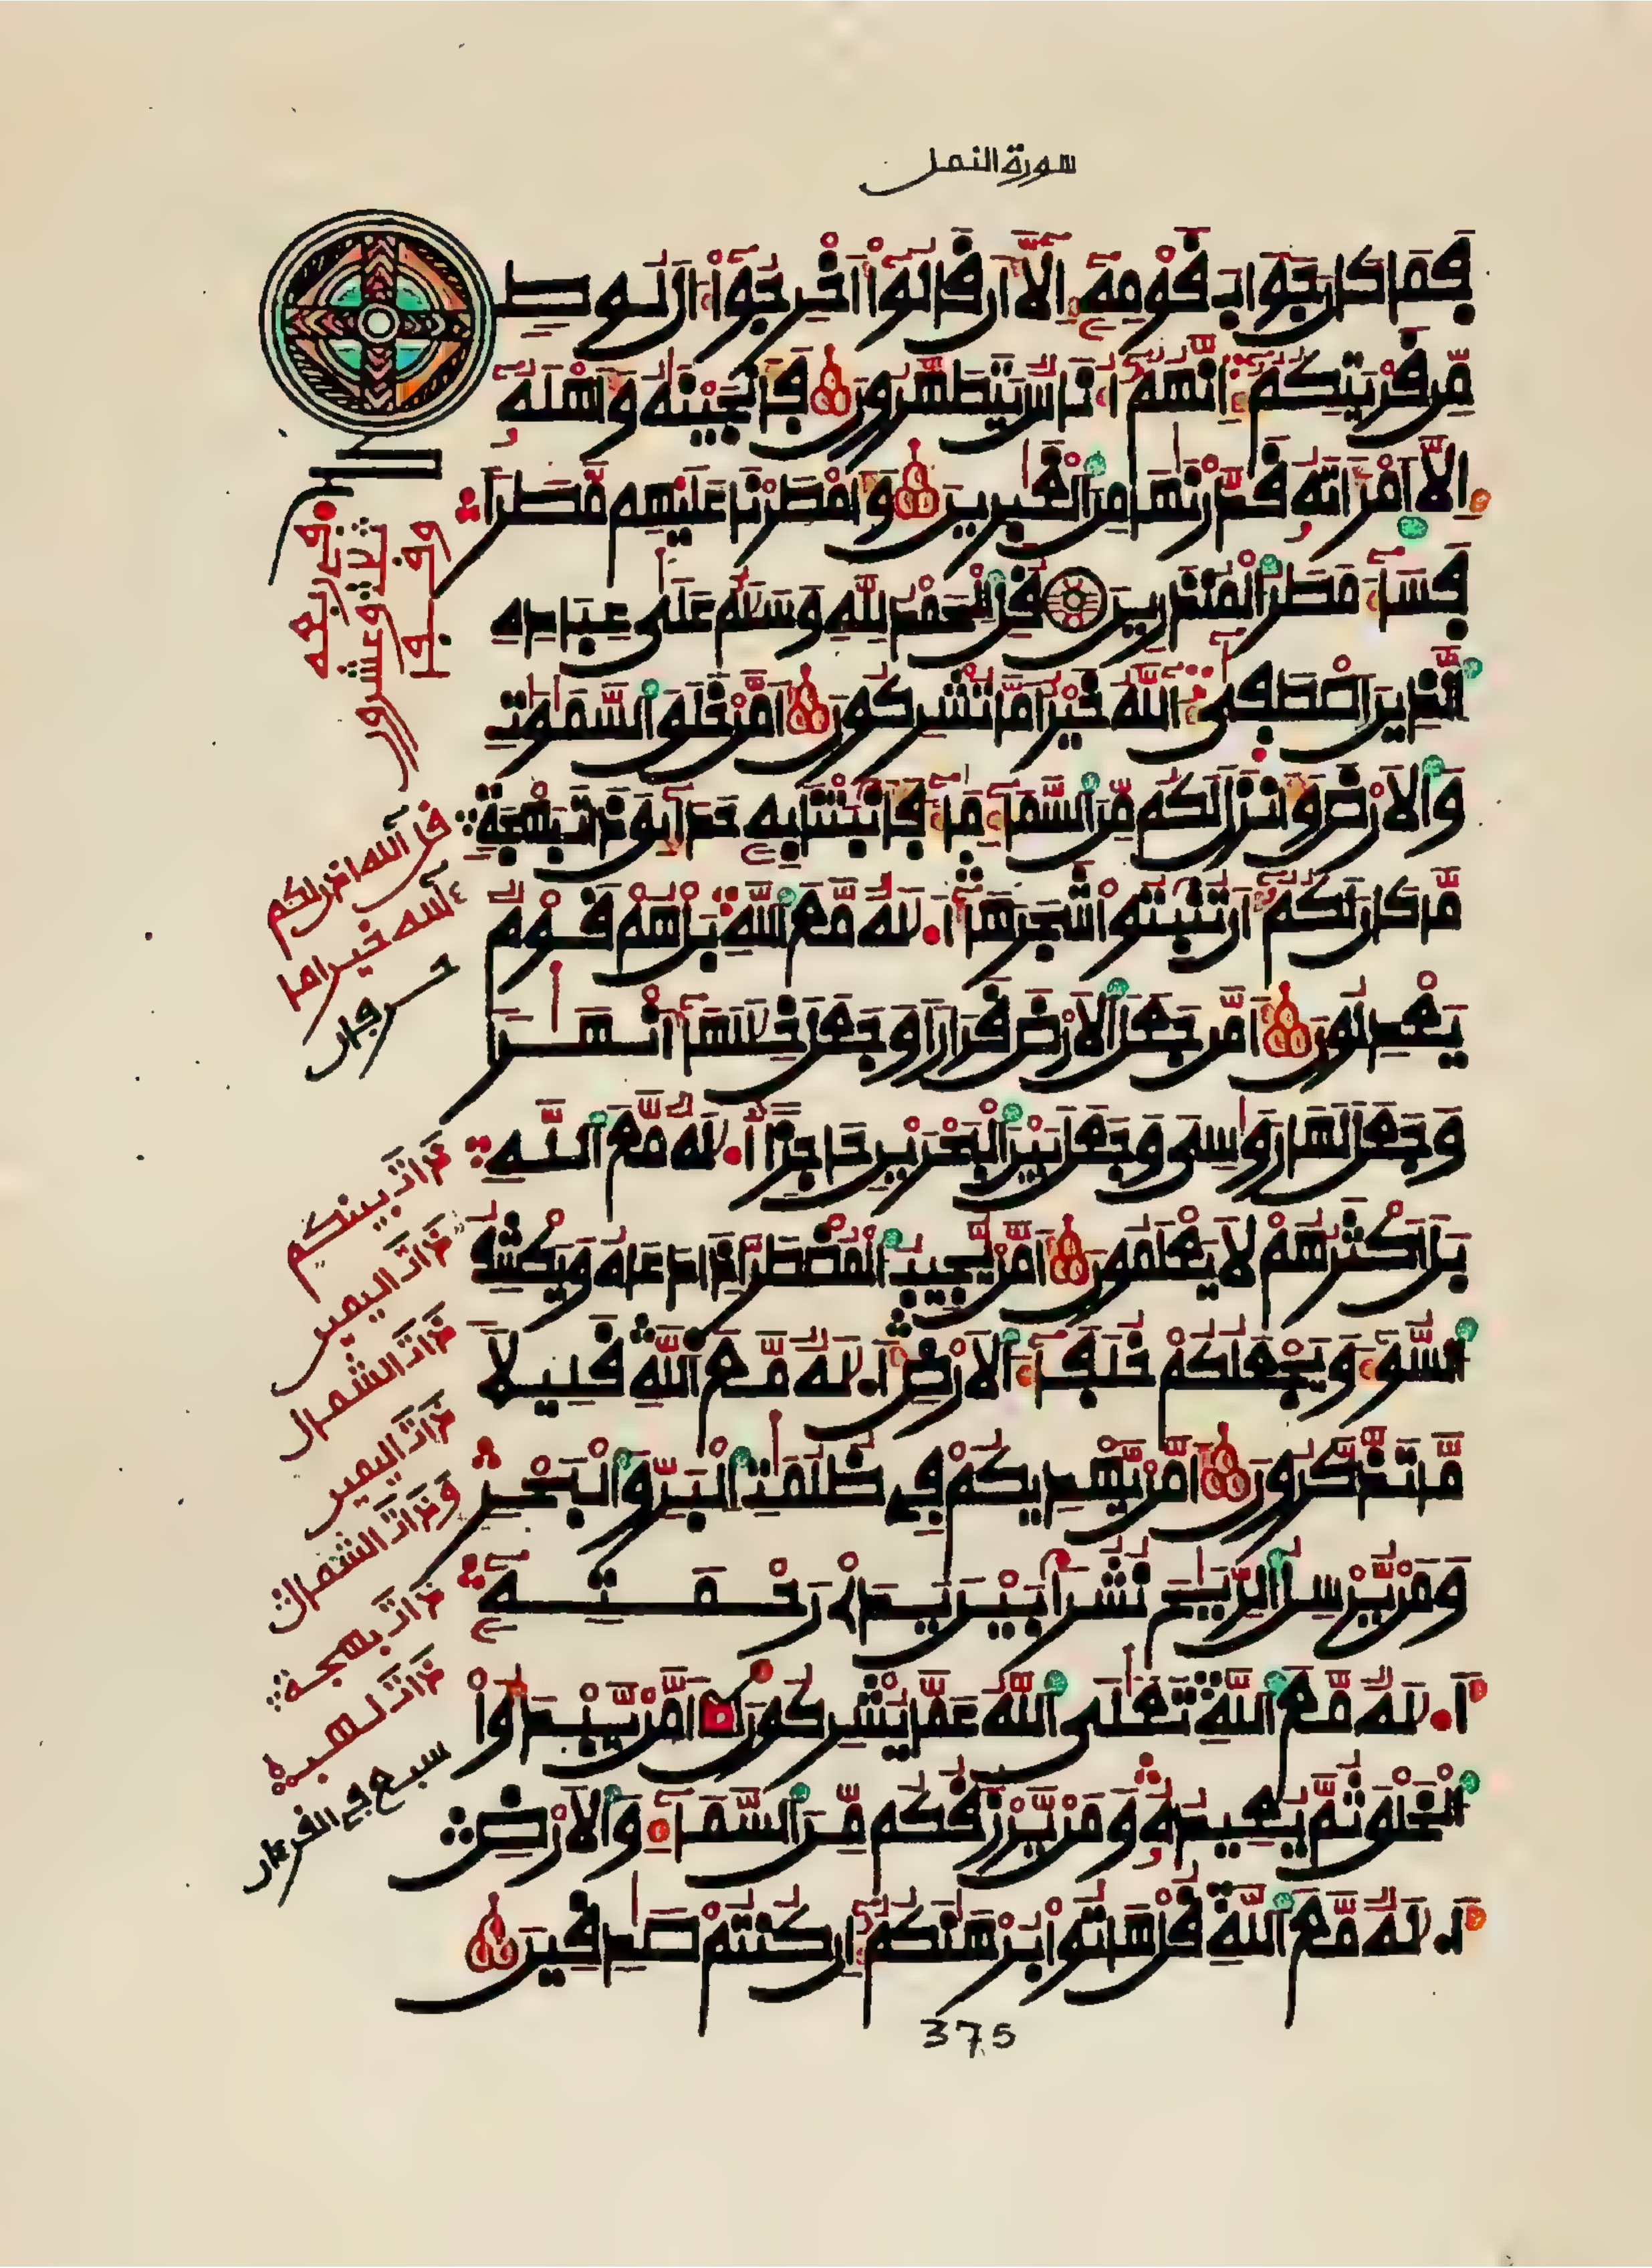 سورة النمل
فَمَا كَانَ جَوَابَ قَوْمِهِ إِلَّا أَن قَالُوا أَخْرِجُوا ءَالَ لُوطٍ
مِّن قَرْيَتِكُمْ إِنَّهُمْ أُنَاسٌ يَتَطَهَّرُونَ فَأَنجَيْنَهُ وَأَهْلَهُ
إِلَّا امْرَأَتَهُ قَدَّرْنَهَا مِنَ الْغَبِرِينَ وَأَمْطَرْنَا عَلَيْهِم مَّطَرًا
فَسَاءَ مَطَرُ الْمُنذَرِينَ قُلِ الْحَمْدُ لِلَّهِ وَسَلَمٌ عَلَى عِبَادِهِ
الَّذِينَ اصْطَفَى ءَاللَّهُ خَيْرٌ أَمَّا تُشْرِكُونَ أَمَّنْ خَلَقَ السَّمَوَتِ
وَالْأَرْضَ وَأَنزَلَ لَكُم مِّنَ السَّمَاءِ مَاءً فَأَنبَتْنَا بِهِ حَدَائِقَ ذَاتَ بَهْجَةٍ
مَّا كَانَ لَكُمْ أَن تُنبِتُوا شَجَرَهَا أَ.لَهٌ مَّعَ اللَّهِ بَلْ هُمْ قَوْمٌ
يَعْدِلُونَ أَمَّن جَعَلَ الْأَرْضَ قَرَارًا وَجَعَلَ خِلَلَهَا أَنْهَرًا
وَجَعَلَ لَهَا رَوَسِيَ وَجَعَلَ بَيْنَ الْبَحْرَيْنِ حَاجِزًا أَ.لَهٌ مَّعَ اللَّهِ
بَلْ أَكْثَرُهُمْ لَا يَعْلَمُونَ أَمَّن يُجِيبُ الْمُضْطَرَّ إِذَا دَعَاهُ وَيَكْشِفُ
السُّوءَ وَيَجْعَلُكُمْ خُلَفَاءَ الْأَرْضِ أَ.لَهٌ مَّعَ اللَّهِ قَلِيلًا
مَّا تَذَّكَّرُونَ أَمَّن يَهْدِيكُمْ فِي ظُلُمَتِ الْبَرِّ وَالْبَحْرِ
وَمَن يُرْسِلُ الرِّيَحَ نُشُرًا بَيْنَ يَدَيْ رَحْمَتِهِ
أَ.لَهٌ مَّعَ اللَّهِ تَعَلَى اللَّهُ عَمَّا يُشْرِكُونَ أَمَّن يَبْدَؤُا
الْخَلْقَ ثُمَّ يُعِيدُهُ وَمَن يَرْزُقُكُم مِّنَ السَّمَاءِ وَالْأَرْضِ
أَ.لَهٌ مَّعَ اللَّهِ قُلْ هَاتُوا بُرْهَنَكُمْ إِن كُنتُمْ صَدِقِينَ
قل ءالله اذن لكم
ءالله خير اما
ذات بينكم
ذات اليمين
ذات الشمال
ذات اليمين
وذات الشمال
ذات بهجة
ذات لهب
سبع في القرءان
375